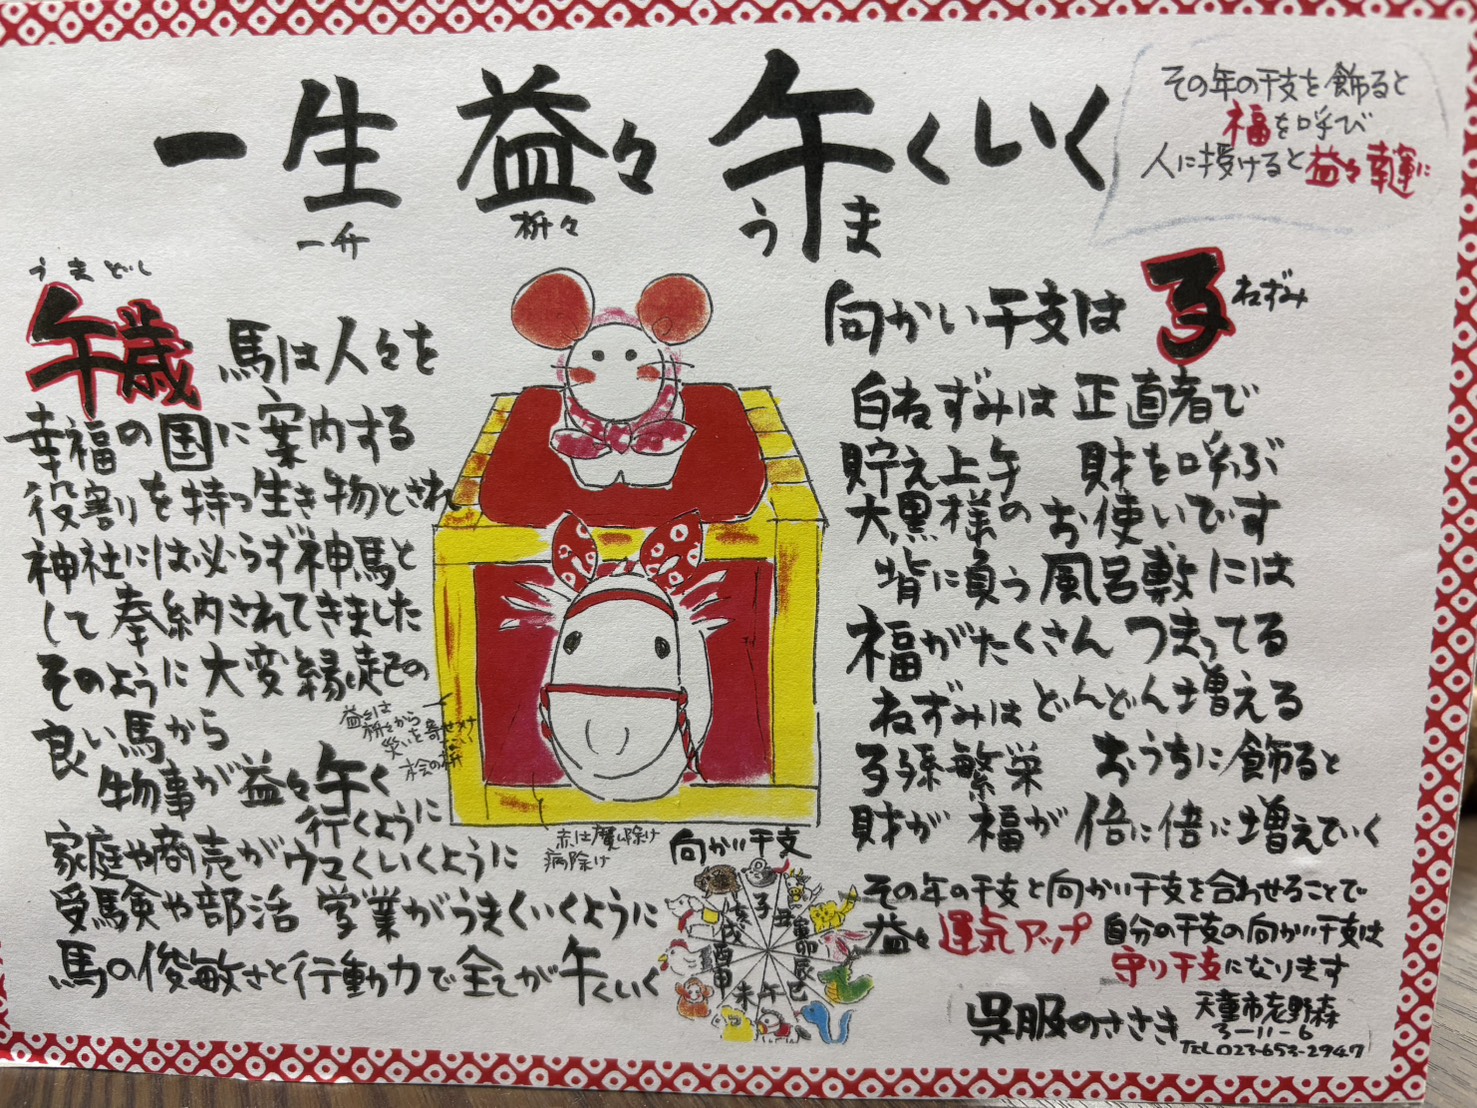 一生益々午くいく
一升
桝々
うま
その年の干支を飾ると
福を呼び
人に授けると益々幸運に
うまどし
午歳 馬は人々を
幸福の国に案内する
役割を持つ生き物とされ
神社には必らず神馬と
して奉納されてきました
そのように大変縁起の
良い馬から
物事が益々午く
行くように
家庭や商売がウマくいくように
受験や部活 学業がうまくいくように
馬の俊敏さと行動力で全てが午くいく
益々は
桝々から
災いを寄せつけない
赤は魔除け
病除け
向かい干支は子
ねずみ
白ねずみは正直者で
貯え上午 財を呼ぶ
大黒様のお使いです
背に負う風呂敷には
福がたくさんつまってる
ねずみはどんどん増える
子孫繁栄 おうちに飾ると
財が福が倍に倍に増えていく
向かい干支
子
丑
寅
卯
辰
巳
午
未
申
酉
戌
亥
その年の干支と向かい干支を合わせることで
益々運気アップ 自分の干支の向かい干支は
守り干支になります
呉服のささき
天童市老野森
3-11-6
TEL 023-653-2947